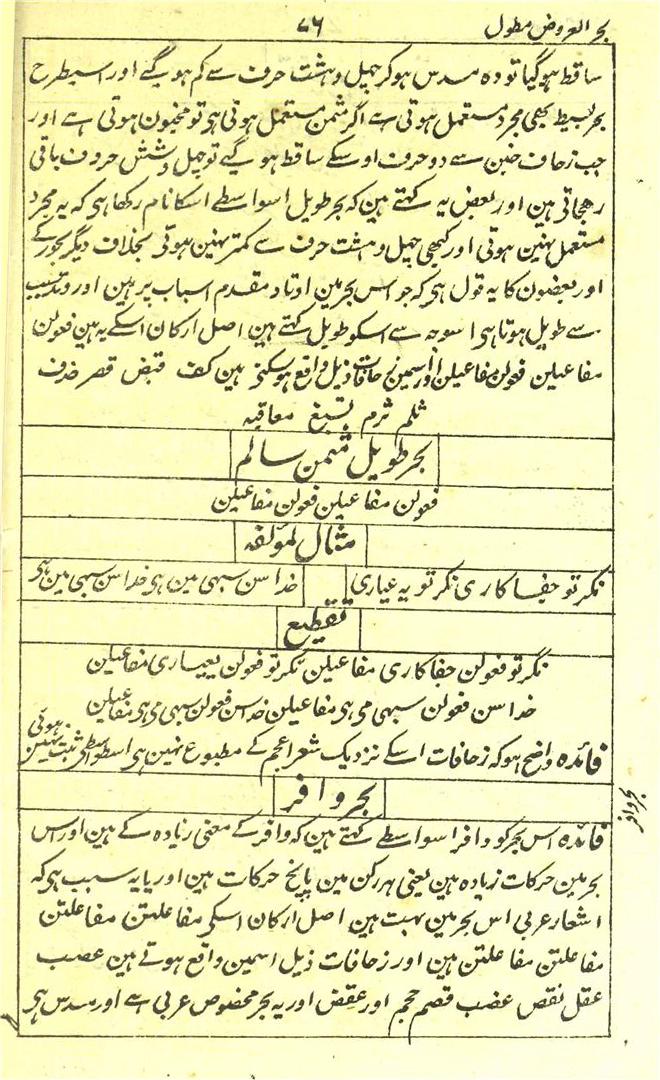 بحر العروض مطول
۷۶
ساقط ہوگیا تو وہ مسدس ہوکر چہل و ہشت حرف سے کم ہو گیے اور اسیطرح
بحر بسیط بھی مجرد مستعمل ہوتی ہے اگر مثمن مستعمل ہوتی ہی تو مخبون ہوتی ہے اور
جب زحاف خبن سے دو حرف اوسکے ساقط ہو گیے تو چہل و شش حروف باقی
رهجاتی ہین اور بعض یہ کہتے ہین کہ بحر طویل اسواسطے اسکا نام رکھا ہی کہ یہ مجرد
مستعمل نہین ہوتی اور کبھی چہل و ہشت حرف سے کمتر نہین ہوتی بخلاف دیگر بحور کے
اور بعضون کا یہ قول ہی کہ جو اس بحر مین اوتاد مقدم اسباب پر ہین اور وتد سبب
سے طویل ہوتا ہی اسوجہ سے اسکو طویل کہتے ہین اصل ارکان اسکے یہ ہین فعولن
مفاعیلن فعولن مفاعیلن اور اسمین زحافات ذیل واقع ہوسکتی ہین کف قبض قصر حذف
ثلم ثرم تسبغ معاقبہ
بحر طویل مثمن سالم
فعولن مفاعیلن فعولن مفاعیلن
مثال لمؤلفہ
نکر تو جفا کاری نکر تو یہ عیاری
خدا سن سبہی مین ہی خدا سن سبہی مین ہی
تقطیع
نکر تو فعولن جفا کاری مفاعیلن نکر تو فعولن یعیاری مفاعیلن
خدا سن فعولن سبہی می ہی مفاعیلن خدا سن فعولن سبہی می ہی مفاعیلن
فائدہ واضح ہو کہ زحافات اسکے نزدیک شعراء عجم کے مطبوع نہین ہی اسطواسطی ثبت نہین ہوئی
بحر وافر
بحر وافر
فائدہ اس بحر کو وافر اسواسطے کہتے ہین کہ وافر کے معنی زیادہ کے ہین اور اس
بحر مین حرکات زیادہ ہین یعنی ہر رکن مین پانچ حرکات ہین اور یا یہ سبب ہی کہ
اشعار عربی اس بحر مین بہت ہین اصل ارکان اسکی مفاعلتن مفاعلتن
مفاعلتن مفاعلتن ہین اور زحافات ذیل اسمین واقع ہوتے ہین عصب
عقل نقص عضب قصم جمم اور عقص اور یہ بحر مخصوص عربی ہے اور مسدس ہی